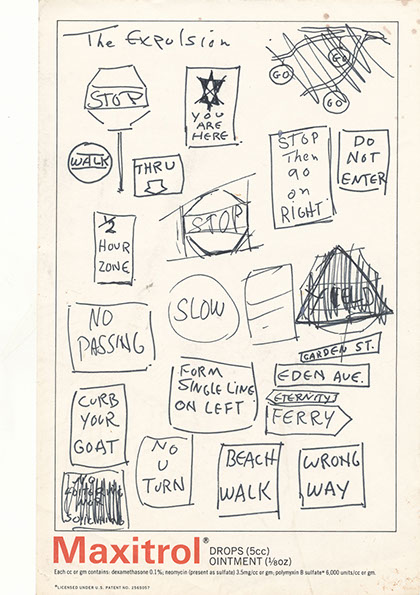 The Expulsion
GO
GO
GO
STOP
YOU
ARE
HERE
WALK
THRU
STOP
Then
go
on
RIGHT
DO
NOT
ENTER
1/2
HOUR
ZONE
STOP
NO
PASSING
SLOW
YIELD
GARDEN ST.
EDEN AVE.
ETERNITY
FERRY
CURB
YOUR
GOAT
FORM
SINGLE LINE
ON LEFT
NO
U
TURN
BEACH
WALK
WRONG
WAY
NO
Maxitrol® DROPS (5cc)
OINTMENT (1/8oz)
Each cc or gm contains: dexamethasone 0.1%; neomycin (present as sulfate) 3.5mg/cc or gm; polymyxin B sulfate* 6,000 units/cc or gm.
*LICENSED UNDER U.S. PATENT NO. 2565057